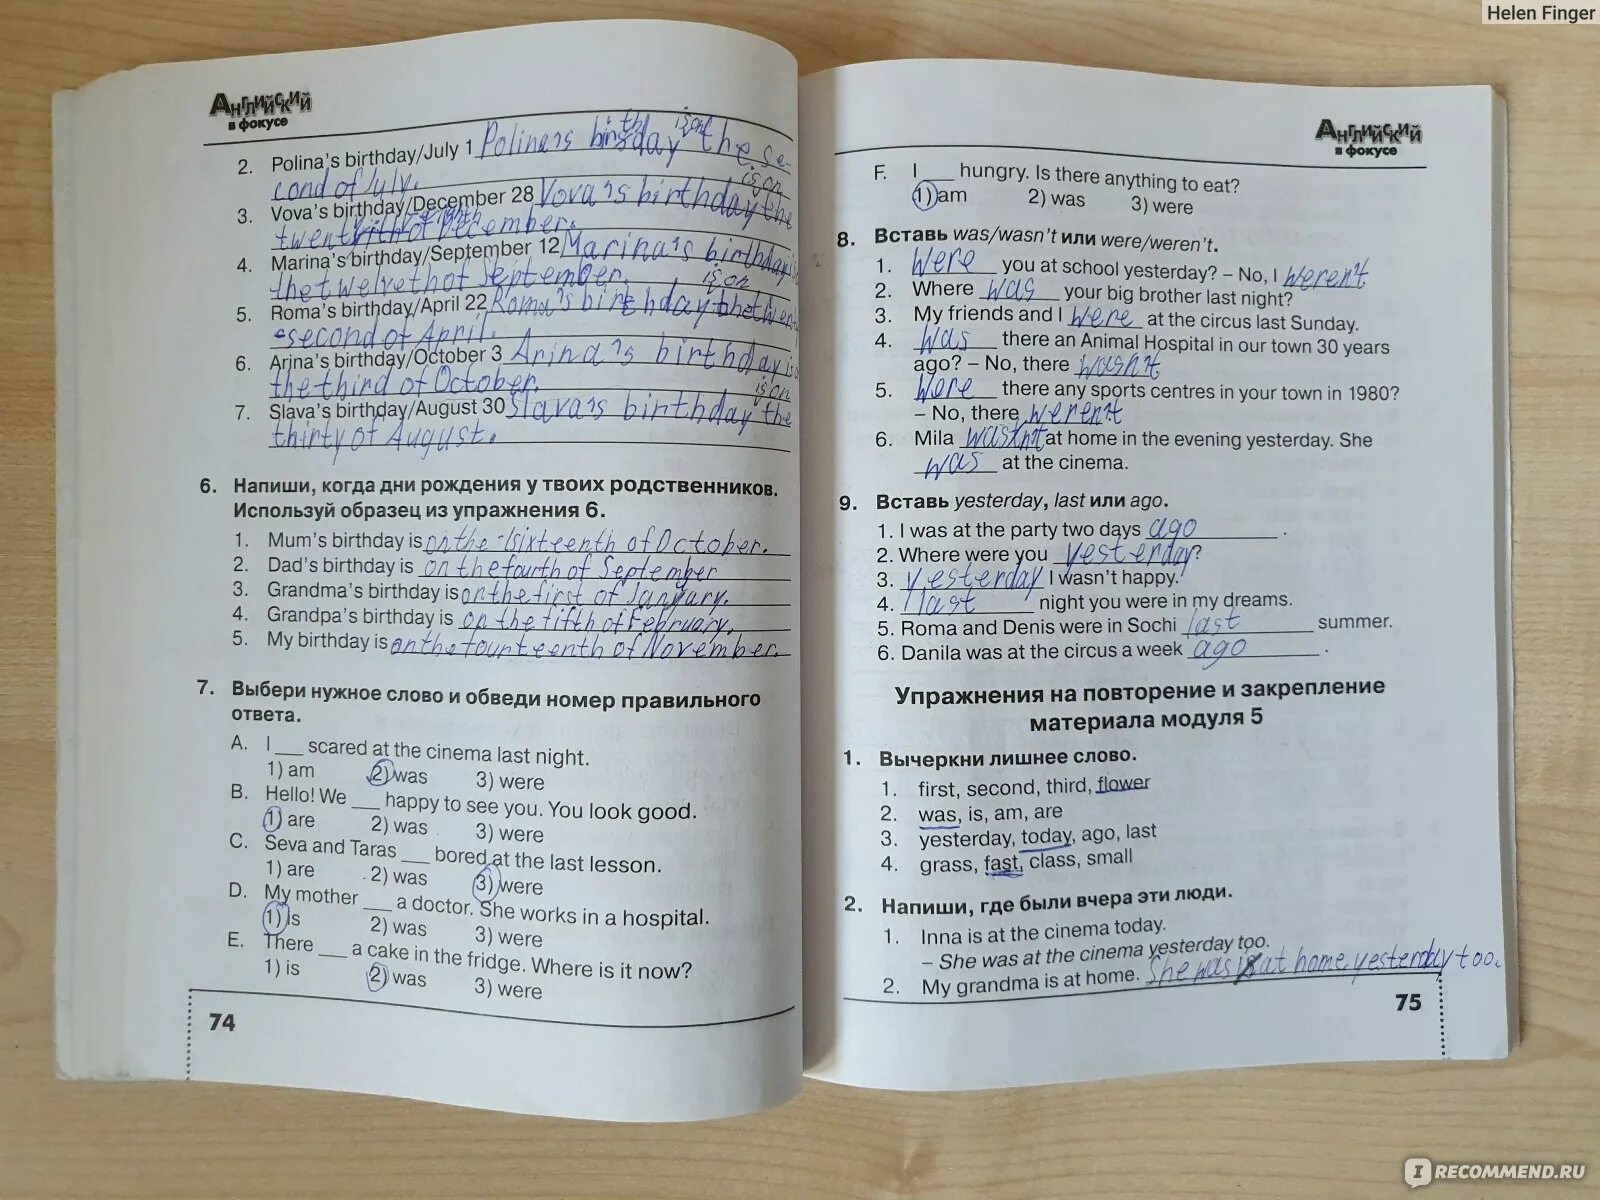 Helen Finger
Английский
в фокусе
2. Polina's birthday/July 1 Polina's birthday is on the se-
cond of July.
3. Vova's birthday/December 28 Vova's birthday is on the
twenty-eighth of December.
4. Marina's birthday/September 12 Marina's birthday is
the twelveth of September.
5. Roma's birthday/April 22 Roma's birthday is on the twenty
-second of April.
6. Arina's birthday/October 3 Arina's birthday is on
the third of October.
7. Slava's birthday/August 30 Slava's birthday is on the
thirty of August.
6. Напиши, когда дни рождения у твоих родственников.
Используй образец из упражнения 6.
1. Mum's birthday is on the sixteenth of October.
2. Dad's birthday is on the fourth of September
3. Grandma's birthday is on the first of January.
4. Grandpa's birthday is on the fifth of February.
5. My birthday is on the fourteenth of November.
7. Выбери нужное слово и обведи номер правильного
ответа.
A. I ___ scared at the cinema last night.
1) am 2) was 3) were
B. Hello! We ___ happy to see you. You look good.
1) are 2) was 3) were
C. Seva and Taras ___ bored at the last lesson.
1) are 2) was 3) were
D. My mother ___ a doctor. She works in a hospital.
1) is 2) was 3) were
E. There ___ a cake in the fridge. Where is it now?
1) is 2) was 3) were
74
Английский
в фокусе
F. I ___ hungry. Is there anything to eat?
1) am 2) was 3) were
8. Вставь was/wasn't или were/weren't.
1. Were you at school yesterday? – No, I weren't
2. Where was your big brother last night?
3. My friends and I were at the circus last Sunday.
4. was there an Animal Hospital in our town 30 years
ago? – No, there wasn't
5. were there any sports centres in your town in 1980?
– No, there weren't
6. Mila wasn't at home in the evening yesterday. She
was at the cinema.
9. Вставь yesterday, last или ago.
1. I was at the party two days ago.
2. Where were you yesterday?
3. yesterday I wasn't happy.
4. last night you were in my dreams.
5. Roma and Denis were in Sochi last summer.
6. Danila was at the circus a week ago.
Упражнения на повторение и закрепление
материала модуля 5
1. Вычеркни лишнее слово.
1. first, second, third, flower
2. was, is, am, are
3. yesterday, today, ago, last
4. grass, fast, class, small
2. Напиши, где были вчера эти люди.
1. Inna is at the cinema today.
– She was at the cinema yesterday too.
2. My grandma is at home. She was at home yesterday too.
75
IRECOMMEND.RU